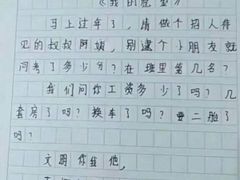 《我的愿望》
马上过年了，请做个招人待
见的叔叔阿姨，别逮个小朋友就
问考了多少分？在班里第几名？
我们问你工资多少了吗？几
套房了吗？换车了吗？要二胎了
吗？
文明你我他，